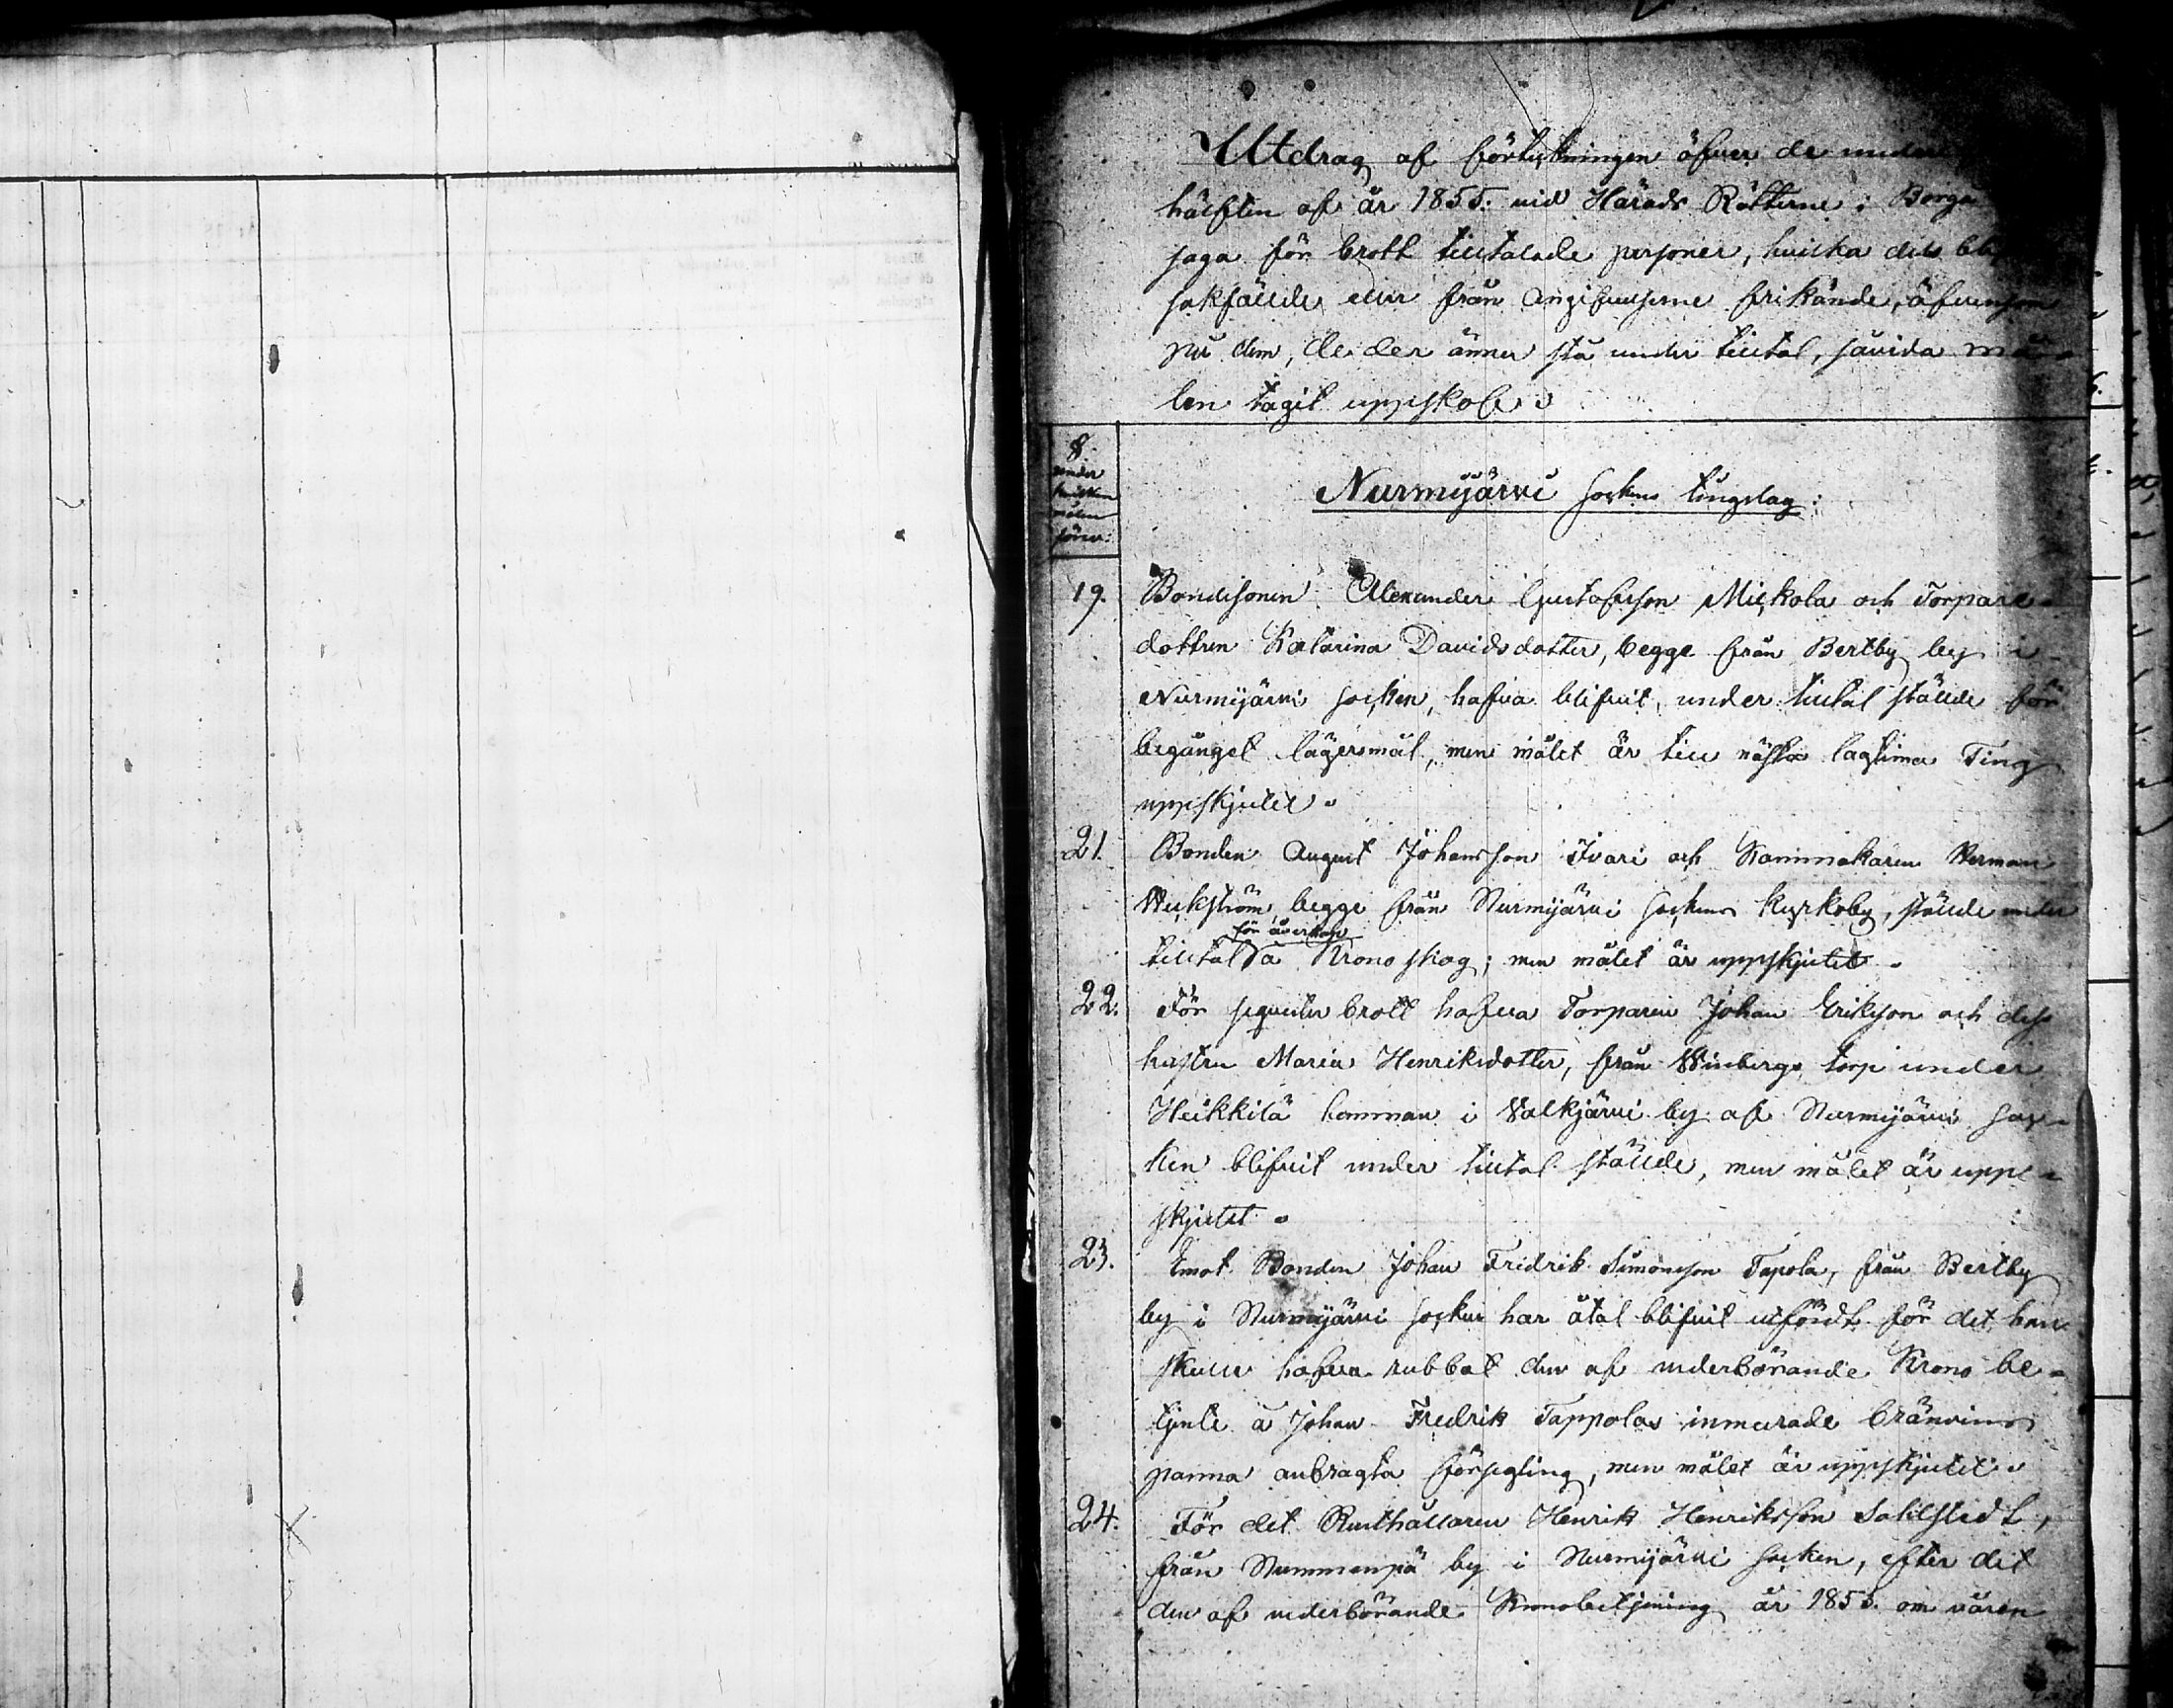 Utdrag af förtekningen öfver de under
hälften af år 1855. vid Härads Rätterne i Borgå
saga för brott tilltalade personer, hvilka dels bl
sakfällde eller från angifvelserne frikände, äfvensom
på dem, de der ännu stå under tilltal, såvida må-
len tagit uppskof.
§.
under
hvilken
målen
förev:
Nurmijärvi sockens tingslag:
19. Bondesonen Alexander Gustafsson Mickola och Torpare-
dottren Katarina Davidsdotter, begge från Bertby by i
Nurmijärvi socken, hafva blifvit, under tilltal ställde för
begånget lägersmål, men målet är till nästa lagtima Ting
uppskjutet.
21. Bonden August Johansson Ivari och Kammakaren Herman
Weckström, begge från Nurmijärvi sockens kyrkoby, ställde under
för åverkan
tilltal å Krono skog; men målet är uppskjutet.
22. För brott hafva Torparen Johan Eriksson och dess
hustru Maria Henriksdotter, från Winbergs torp under
Heikkilä hemman i Valkjärvi by af Nurmijärvi soc-
ken blifvit under tilltal ställde, men målet är upp-
skjutet.
23. Emot Bonden Johan Fredrik Simonsson Tapola, från Bertby
by i Nurmijärvi socken har åtal blifvit utfördt för det han
skulle hafva rubbat den af vederbörande Krono be-
tjente å Johan Fredrik Tappolas inmurade bränvins
panna anbragta försegling, men målet är uppskjutet.
24. För det Rusthållaren Henrik Henriksson Sahlstedt,
från Nummenpä by i Nurmijärvi socken, efter det
den af vederbörande Kronobetjening år 1855. om våren